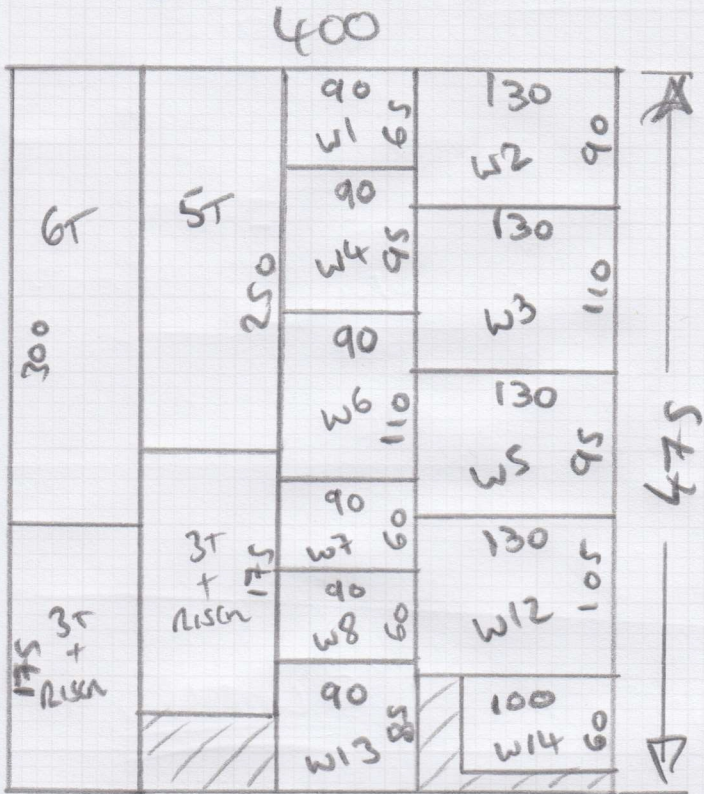 400
6T
300
3T
+
RISER
175
5T
250
3T
+
RISER
175
90
W1 65
90
W4 95
90
W6 110
90
W7 60
90
W8 60
90
W13 85
130
W2 90
130
W3 110
130
W5 95
130
W12 105
100
W14 60
475